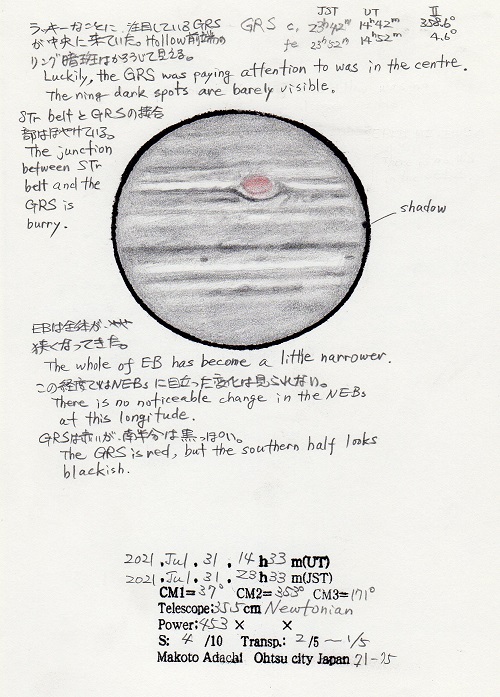 ラッキーなことに、注目しているGRS
が中央に来ていた。Hollow前端の
リング暗斑はかろうじて見える。
JST UT II
GRS c. 23h42m 14h42m 358.6°
fe 23h52m 14h52m 4.6°
Luckily, the GRS was paying attention to was in the centre.
The ning dark spots are barely visible.
STr belt と GRSの接合
部はぼやけている。
The junction
between STr
belt and the
GRS is
burry.
shadow
EBは全体が、
狭くなってきた。
The whole of EB has become a little narrower.
この経度ではNEBsに目立った変化は見られない。
There is no noticeable change in the NEBs
at this longitude.
GRSは赤いが、南半分は黒っぽい。
The GRS is red, but the southern half looks
blackish.
2021 . Jul . 31 . 14 h 33 m(UT)
2021 . Jul . 31 . 23 h 33 m(JST)
CM1= 37° CM2= 353° CM3= 171°
Telescope: 35.5 cm Newtonian
Power: 453 × ×
S: 4 /10 Transp.: 2/5 ~ 1/5
Makoto Adachi Ohtsu city Japan 21-75